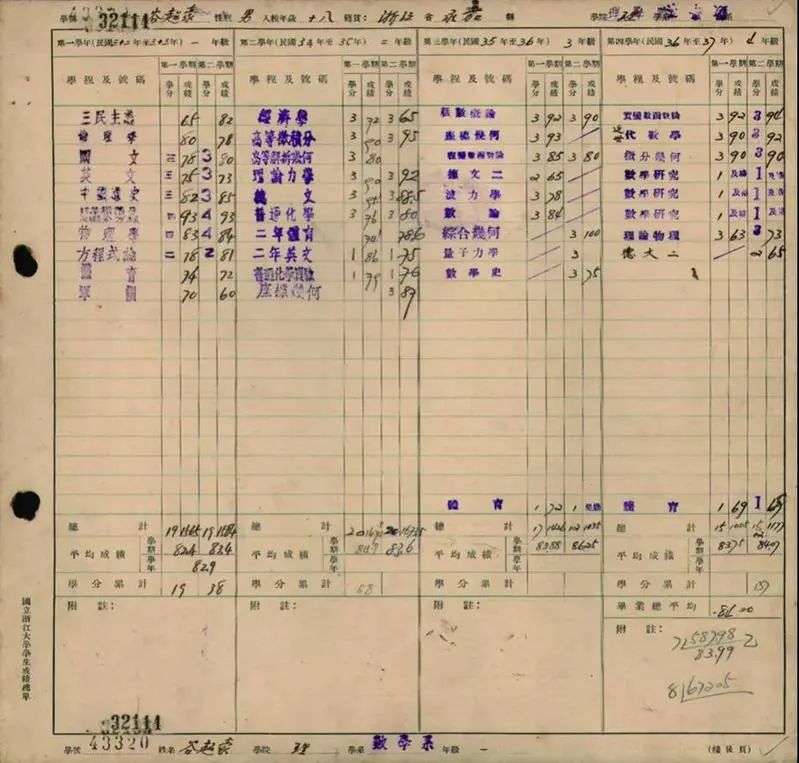 學號 32114 谷超豪 性別 男 入校年歲 十八 籍貫: 浙江 省 永嘉 縣 學院 理 學系
第一學年(民國 年至 年) 一 年級 第二學年(民國 34 年至 35 年) 二 年級 第三學年(民國 35 年至 36 年) 3 年級 第四學年(民國 36 年至 37 年) 4 年級
學程及號碼 第一學期 第二學期 學程及號碼 第一學期 第二學期 學程及號碼 第一學期 第二學期 學程及號碼 第一學期 第二學期
學分 成績 學分 成績 學分 成績 學分 成績 學分 成績 學分 成績 學分 成績 學分 成績
三民主義 65 82 經濟學 3 72 3 65 級數概論 3 92 3 90 實變數函數論 3 92 3 94
論理學 80 78 高等微積分 3 90 3 95 座標幾何 3 93 近世代數學 3 90 3 92
國文 三 78 3 80 高等解析幾何 3 80 複變數函數論 3 85 3 80 微分幾何 3 90 3 90
英文 三 75 3 73 理論力學 3 90 3 92 德文二 2 65 數學研究 1 及格 1 及格
中國通史 三 82 3 85 德文 3 3 88.5 波力學 3 78 數學研究 1 及格 1 及格
四 93 4 93 普通化學 3 76 3 80 數論 3 84 數學研究 1 及格 1 及格
物理學 四 83 4 84 二年體育 78.6 綜合幾何 3 100 理論物理 3 63 3 73
方程式論 二 78 2 81 二年英文 1 86 1 75 量子力學 3 德文二 2 65
體育 74 72 普通化學實驗 1 79 1 76 數學史 3 75
軍訓 70 60 座標幾何 3 87
體育 1 72 1 體育 1 69 1
總計 19 19 總計 20 20 總計 17 總計 15
平均成績 學期 82.4 83.4 平均成績 學期 83.6 平均成績 學期 83.88 86.25 平均成績 學期 83.75
學年 82.9 學年 學年 學年
學分累計 19 38 學分累計 68 學分累計 學分累計 137
附註: 附註: 附註: 畢業總平均
附註:
58798
83.99
國立浙江大學學生成績總單
32114
學號 43320 姓名 谷超豪 學院 理 學系 數學系 年級 一 (接後頁)